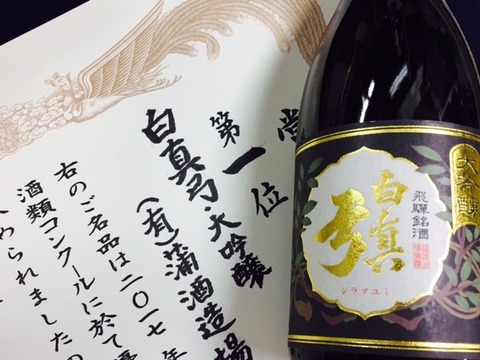 第一位
白真弓・大吟醸
(有)蒲酒造場
右のご名品は二〇一七年
酒類コンクールに於て
められました
大吟醸
飛騨銘酒
白真弓
シラマユミ